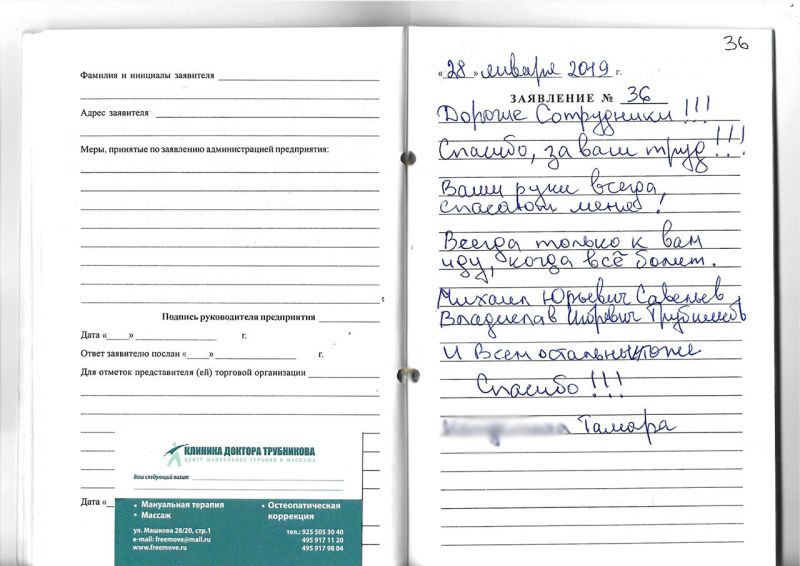 Фамилия и инициалы заявителя
Адрес заявителя
Меры, принятые по заявлению администрацией предприятия:
Подпись руководителя предприятия
Дата «____» ____ г.
Ответ заявителю послан «____» ____ г.
Для отметок представителя (ей) торговой организации
Дата «
КЛИНИКА ДОКТОРА ТРУБНИКОВА
ЦЕНТР МАНУАЛЬНОЙ ТЕРАПИИ И МАССАЖА
Ваш следующий визит
• Мануальная терапия
• Массаж
• Остеопатическая
коррекция
ул. Машкова 28/20, стр.1
e-mail: freemove@mail.ru
www.freemove.ru
тел.: 925 505 30 40
495 917 11 20
495 917 98 04
36
«28» января 2019 г.
ЗАЯВЛЕНИЕ № 36
Дорогие Сотрудники!!!
Спасибо, за ваш труд!!!
Ваши руки всегда,
спасают меня!
Всегда только к вам
иду, когда всё болит.
Михаил Юрьевич Савельев
Владислав Игоревич Трубников
И Всем остальным тоже
Спасибо!!!
Тамара